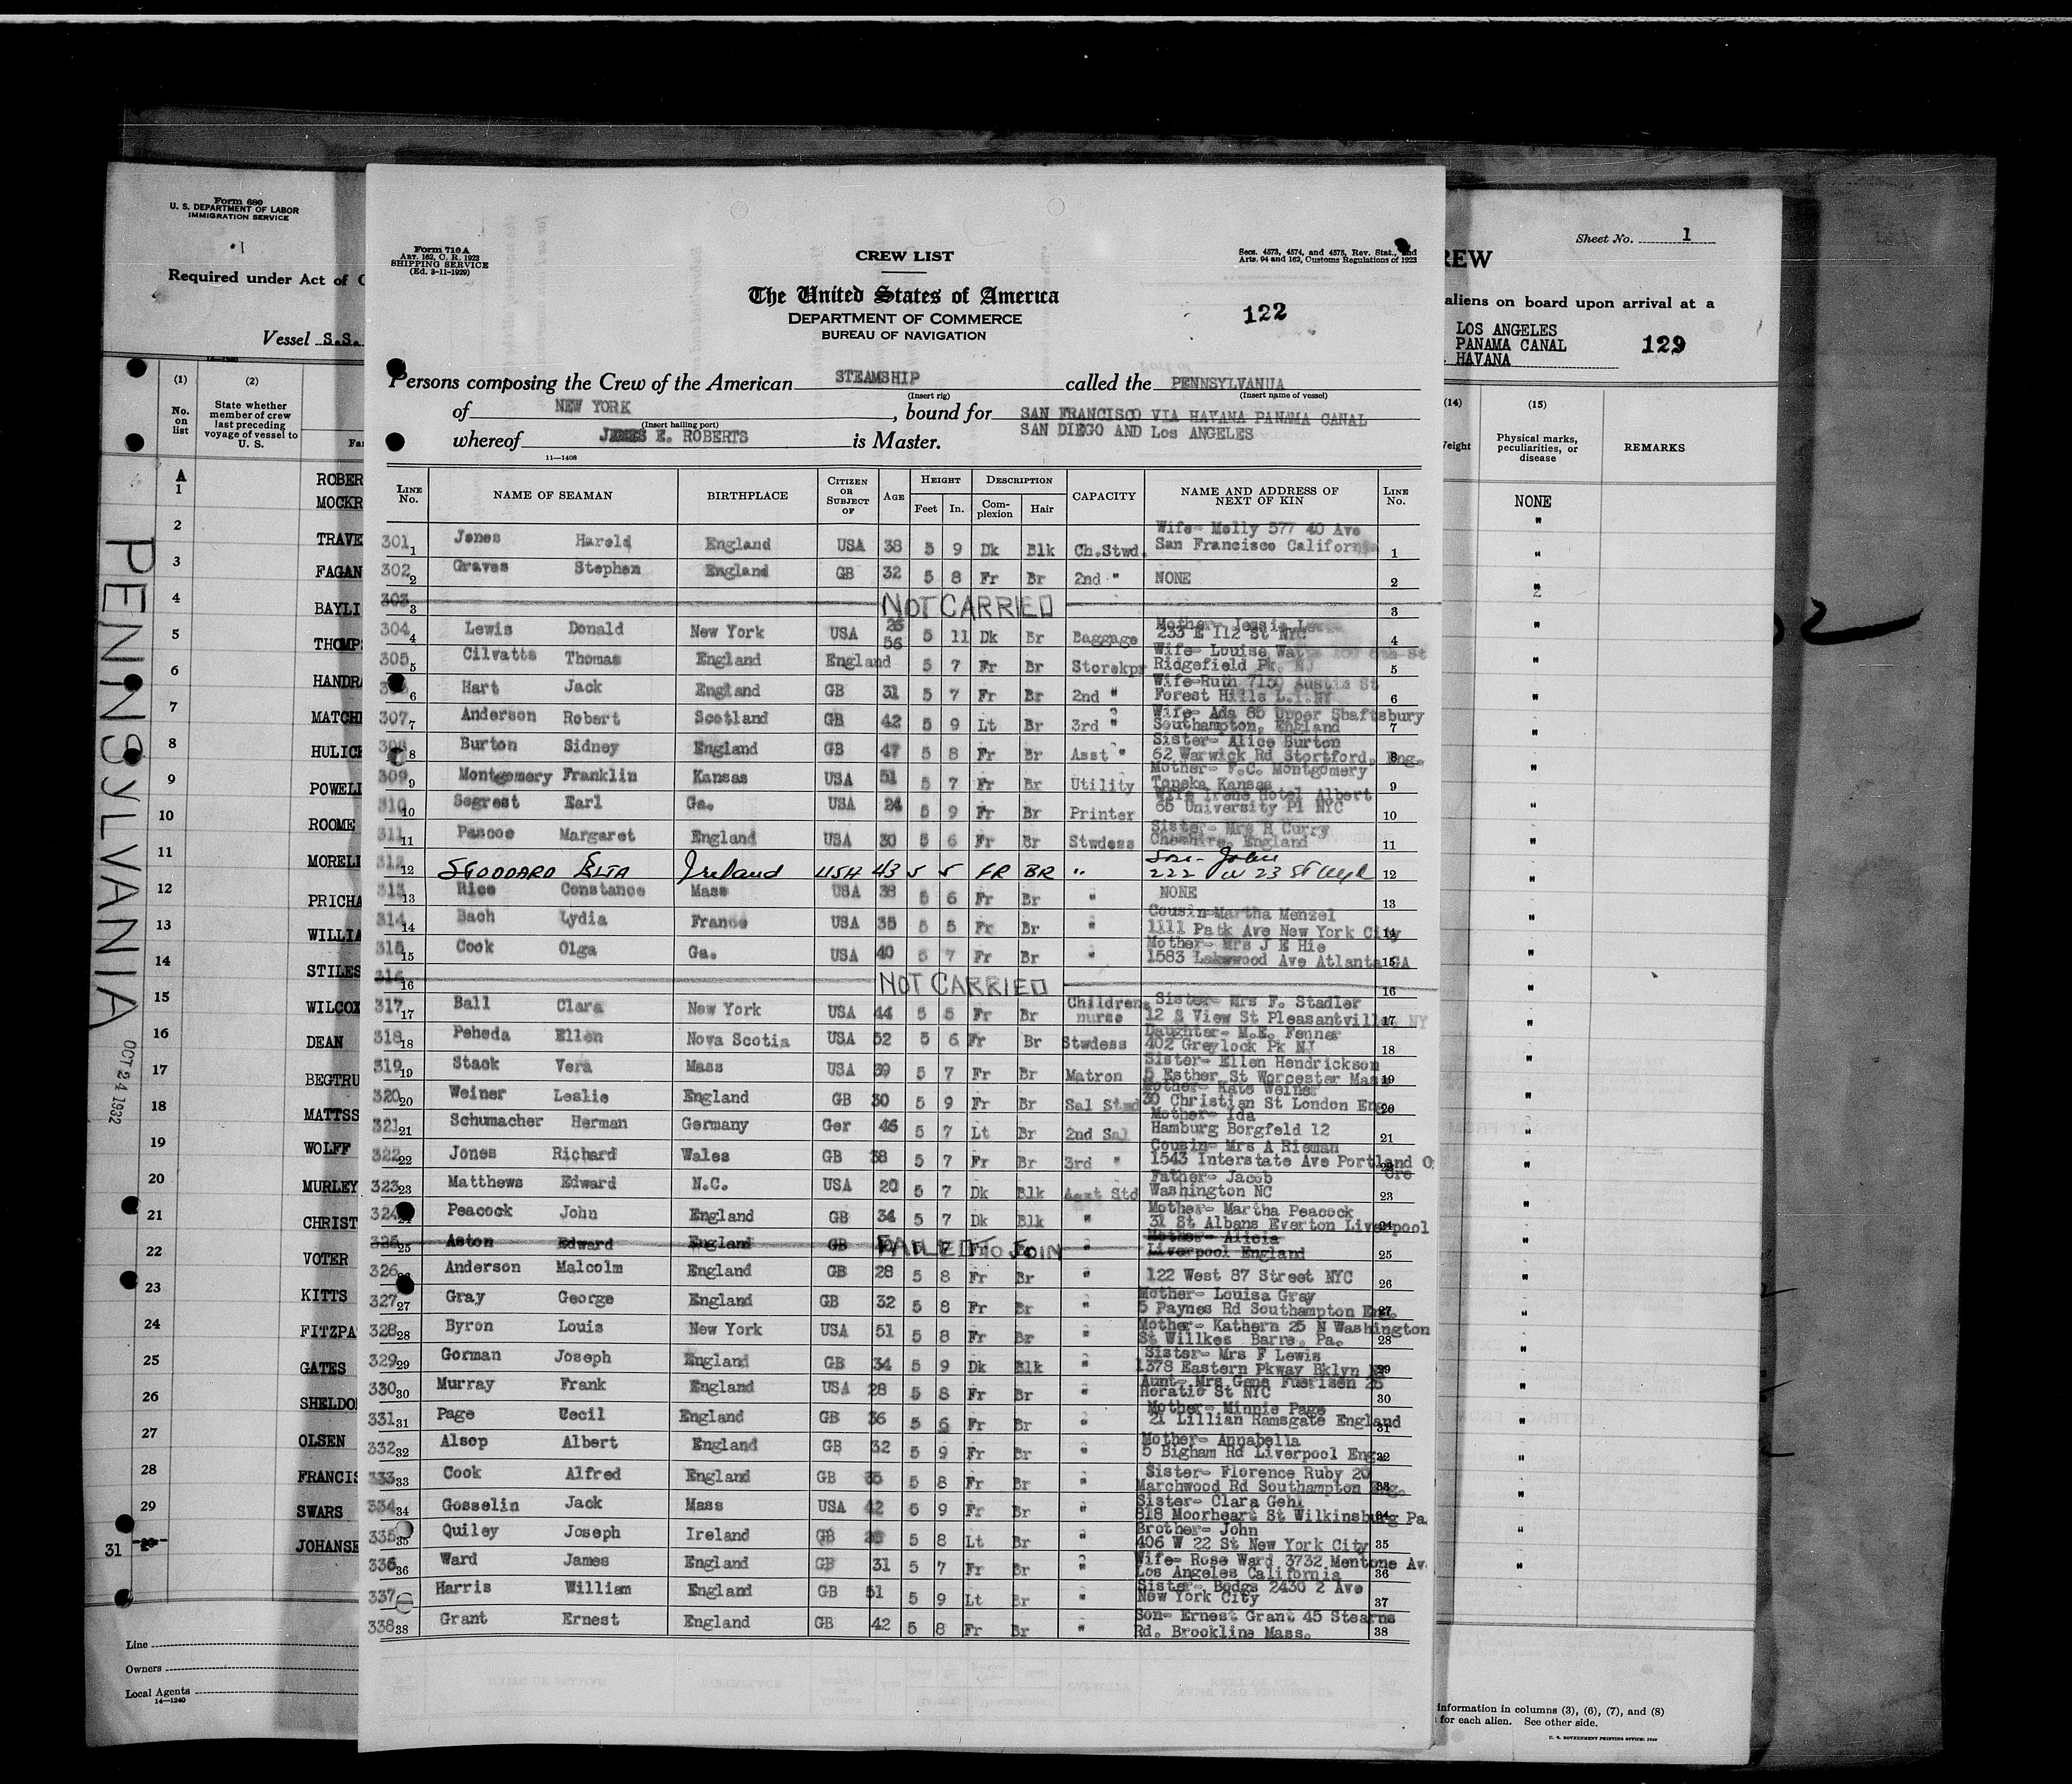 Form 680
U. S. DEPARTMENT OF LABOR
IMMIGRATION SERVICE
Required under Act of
Vessel S.S.
14—1240
(1) (2)
No. on list
State whether member of crew last preceding voyage of vessel to U. S.
Fa
A ROBER
1 MOCKR
2 TRAVE
3 FAGAN
4 BAYLI
5 THOMPS
6 HANDRA
7 MATCHE
8 HULICK
9 POWELL
10 ROOME
11 MORELI
12 PRICHA
13 WILLIA
14 STILES
15 WILCOX
16 DEAN
17 BEGTRU
18 MATTSS
19 WOLFF
20 MURLEY
21 CHRIST
22 VOTER
23 KITTS
24 FITZPA
25 GATES
26 SHELDO
27 OLSEN
28 FRANCIS
29 SWARS
31 JOHANSE
Line
Owners
Local Agents
14—1240
PENNSYLVANIA
OCT 24 1932
Form 710 A
ART. 162, C. R. 1923
SHIPPING SERVICE
(Ed. 3-11-1929)
CREW LIST
Secs. 4573, 4574, and 4575, Rev. Stat., and
Arts. 94 and 162, Customs Regulations of 1923
The United States of America
DEPARTMENT OF COMMERCE
BUREAU OF NAVIGATION
122
Persons composing the Crew of the American STEAMSHIP called the PENNSYLVANUA
(Insert rig) (Insert name of vessel)
of NEW YORK, bound for SAN FRANCISCO VIA HAVANA PANAMA CANAL
(Insert hailing port)
SAN DIEGO AND Los ANGELES
whereof E. ROBERTS is Master.
11—1408
LINE No. NAME OF SEAMAN BIRTHPLACE CITIZEN OR SUBJECT OF AGE HEIGHT Feet In. DESCRIPTION Complexion Hair CAPACITY NAME AND ADDRESS OF NEXT OF KIN LINE No.
301 1 Jones Harold England USA 38 5 9 Dk Blk Ch.Stwd. Wife- Molly 577 40 Ave San Francisco California 1
302 2 Graves Stephen England GB 32 5 8 Fr Br 2nd " NONE 2
303 3 NOT CARRIED 3
304 4 Lewis Donald New York USA 5 11 Dk Br Baggage Mother- Jessie 233 E 112 St NYC 4
305 5 Cilvatts Thomas England England 56 5 7 Fr Br Storekpr Wife- Louise Ridgefield Pk. NJ 5
6 Hart Jack England GB 31 5 7 Fr Br 2nd " Wife-Ruth 7150 Austin St Forest Hills L.I.NY 6
307 7 Anderson Robert Scotland GB 42 5 9 Lt Br 3rd " Wife- Ada 85 Upper Shaftsbury Southampton, England 7
8 Burton Sidney England GB 47 5 8 Fr Br Asst " Sister- Alice Burton 62 Warwick Rd Stortford. Eng. 8
309 9 Montgomery Franklin Kansas USA 51 5 7 Fr Br Utility Mother- F.C. Montgomery Topeka Kansas 9
310 10 Segrest Earl Ga. USA 24 5 9 Fr Br Printer Wife Irene Hotel Albert 65 University Pl NYC 10
311 11 Pascoe Margaret England USA 30 5 6 Fr Br Stwdess Sister- Mrs R Curry Cheshire, England 11
312 12 STODDARD Ireland USA 43 5 5 FR BR " Son- John 222 W 23 St 12
313 13 Rice Constance Mass USA 38 5 6 Fr Br " NONE 13
314 14 Bach Lydia France USA 35 5 5 Fr Br " Cousin-Martha Menzel 1111 Patk Ave New York City 14
315 15 Cook Olga Ga. USA 40 5 7 Fr Br " Mother- Mrs J E Hie 1583 Lakewood Ave Atlanta GA 15
316 16 NOT CARRIED 16
317 17 Ball Clara New York USA 44 5 5 Fr Br Childrens nurse Sister- Mrs F. Stadler 12 S View St Pleasantville NY 17
318 18 Peheda Ellen Nova Scotia USA 52 5 6 Fr Br Stwdess Daughter- M.E. Fenner 402 Greylock Pk NJ 18
319 19 Stack Vera Mass USA 39 5 7 Fr Br Matron Sister- Ellen Hendrickson 5 Esther St Worcester Mass 19
320 20 Weiner Leslie England GB 30 5 9 Fr Br Sal Stwd Mother- Kate Weiner 30 Christian St London Eng 20
321 21 Schumacher Herman Germany Ger 46 5 7 Lt Br 2nd Sal Mother- Ida Hamburg Borgfeld 12 21
322 22 Jones Richard Wales GB 38 5 7 Fr Br 3rd " Cousin- Mrs A Rieman 1543 Interstate Ave Portland Ore 22
323 23 Matthews Edward N.C. USA 20 5 7 Dk Blk Asst Std Father- Jacob Washington NC 23
324 Peacock John England GB 34 5 7 Dk Blk " Mother- Martha Peacock 31 St Albans Everton Liverpool 24
325 25 Aston Edward England GB FAILED TO JOIN " Mother- Alicia Liverpool England 25
326 Anderson Malcolm England GB 28 5 8 Fr Br " 122 West 87 Street NYC 26
327 27 Gray George England GB 32 5 8 Fr Br " Mother- Louisa Gray 5 Paynes Rd Southampton Eng. 27
328 28 Byron Louis New York USA 51 5 8 Fr Br " Mother- Kathern 25 N Washington St Willkes Barre. Pa. 28
329 29 Gorman Joseph England GB 34 5 9 Dk Blk " Sister- Mrs F Lewis 1378 Eastern Pkway Bklyn 29
330 30 Murray Frank England USA 28 5 8 Fr Br " Aunt- Mrs Gene Horatio St NYC 30
331 31 Page Cecil England GB 36 5 6 Fr Br " Mother- Minnie Page 21 Lillian Ramsgate England 31
332 32 Alsop Albert England GB 32 5 9 Fr Br " Mother- Annabella 5 Bigham Rd Liverpool Eng. 32
333 33 Cook Alfred England GB 35 5 8 Fr Br " Sister- Florence Ruby 20 Marchwood Rd Southampton Eng. 33
334 34 Gosselin Jack Mass USA 42 5 9 Fr Br " Sister- Clara Gehl 818 Moorheart St Wilkinsburg Pa 34
335 35 Quiley Joseph Ireland GB 5 8 Lt Br " Brother- John 406 W 22 St New York City 35
336 36 Ward James England GB 31 5 7 Fr Br " Wife- Rose Ward 3732 Mentone Av. Los Angeles California 36
337 Harris William England GB 51 5 9 Lt Br " Sister- Bodgs 2430 2 Ave New York City 37
338 38 Grant Ernest England GB 42 5 8 Fr Br " Son- Ernest Grant 45 Stearns Rd. Brookline Mass. 38
Sheet No. 1
REW
aliens on board upon arrival at a
LOS ANGELES
PANAMA CANAL
HAVANA
129
(14) (15)
eight
Physical marks, peculiarities, or disease
REMARKS
NONE
information in columns (3), (6), (7), and (8)
for each alien. See other side.
U. S. GOVERNMENT PRINTING OFFICE: 1930